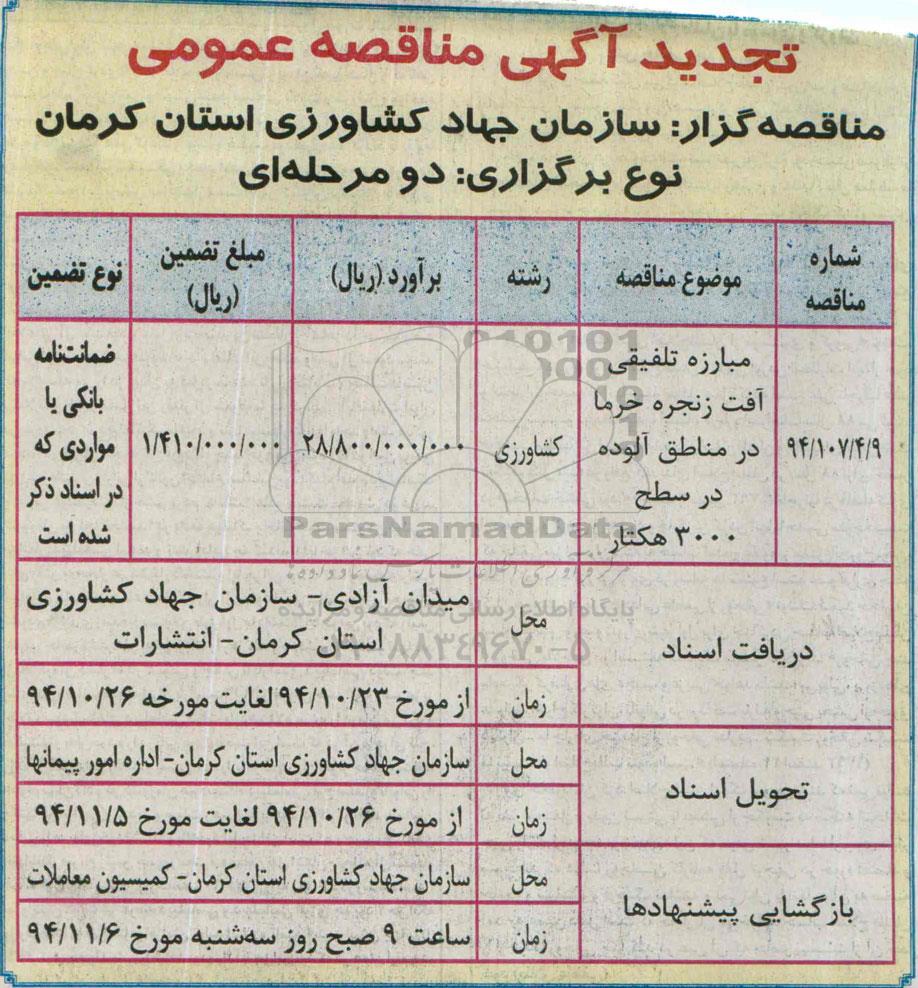 تجدید آگهی مناقصه عمومی
مناقصه‌گزار: سازمان جهاد کشاورزی استان کرمان
نوع برگزاری: دو مرحله‌ای
شماره مناقصه
موضوع مناقصه
رشته
برآورد (ریال)
مبلغ تضمین (ریال)
نوع تضمین
۹۴/۱۰۷/۴/۹
مبارزه تلفیقی
آفت زنجره خرما
در مناطق آلوده
در سطح
۳۰۰۰ هکتار
کشاورزی
۲۸/۸۰۰/۰۰۰/۰۰۰
۱/۴۱۰/۰۰۰/۰۰۰
ضمانت‌نامه
بانکی یا
مواردی که
در اسناد ذکر
شده است
دریافت اسناد
محل
میدان آزادی- سازمان جهاد کشاورزی
استان کرمان- انتشارات
زمان
از مورخ ۹۴/۱۰/۲۳ لغایت مورخه ۹۴/۱۰/۲۶
تحویل اسناد
محل
سازمان جهاد کشاورزی استان کرمان- اداره امور پیمانها
زمان
از مورخ ۹۴/۱۰/۲۶ لغایت مورخ ۹۴/۱۱/۵
بازگشایی پیشنهادها
محل
سازمان جهاد کشاورزی استان کرمان- کمیسیون معاملات
زمان
ساعت ۹ صبح روز سه‌شنبه مورخ ۹۴/۱۱/۶
ParsNamadData
پایگاه اطلاع رسانی مناقصه و مزایده
۰۲۱-۸۸۳۴۹۶۷۰-۵